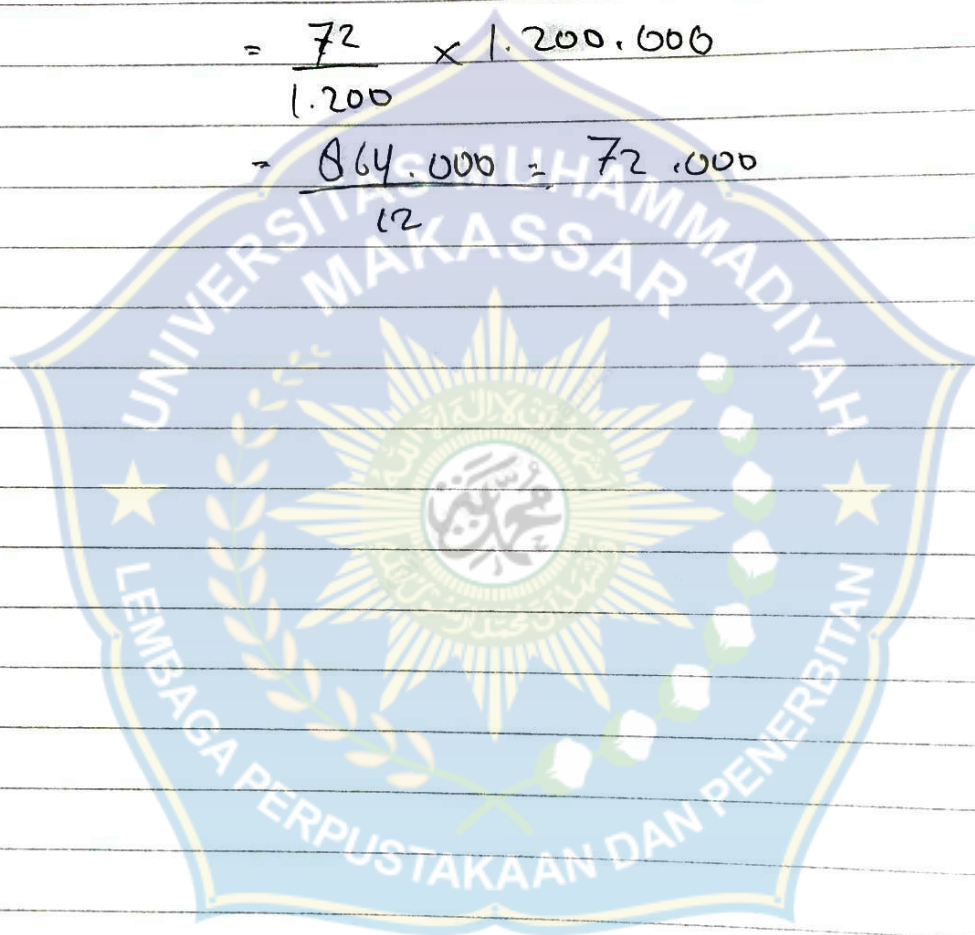 = 72 × 1.200.000
1.200
= 864.000 = 72.000
12
UNIVERSITAS MUHAMMADIYAH
MAKASSAR
LEMBAGA PERPUSTAKAAN DAN PENERBITAN